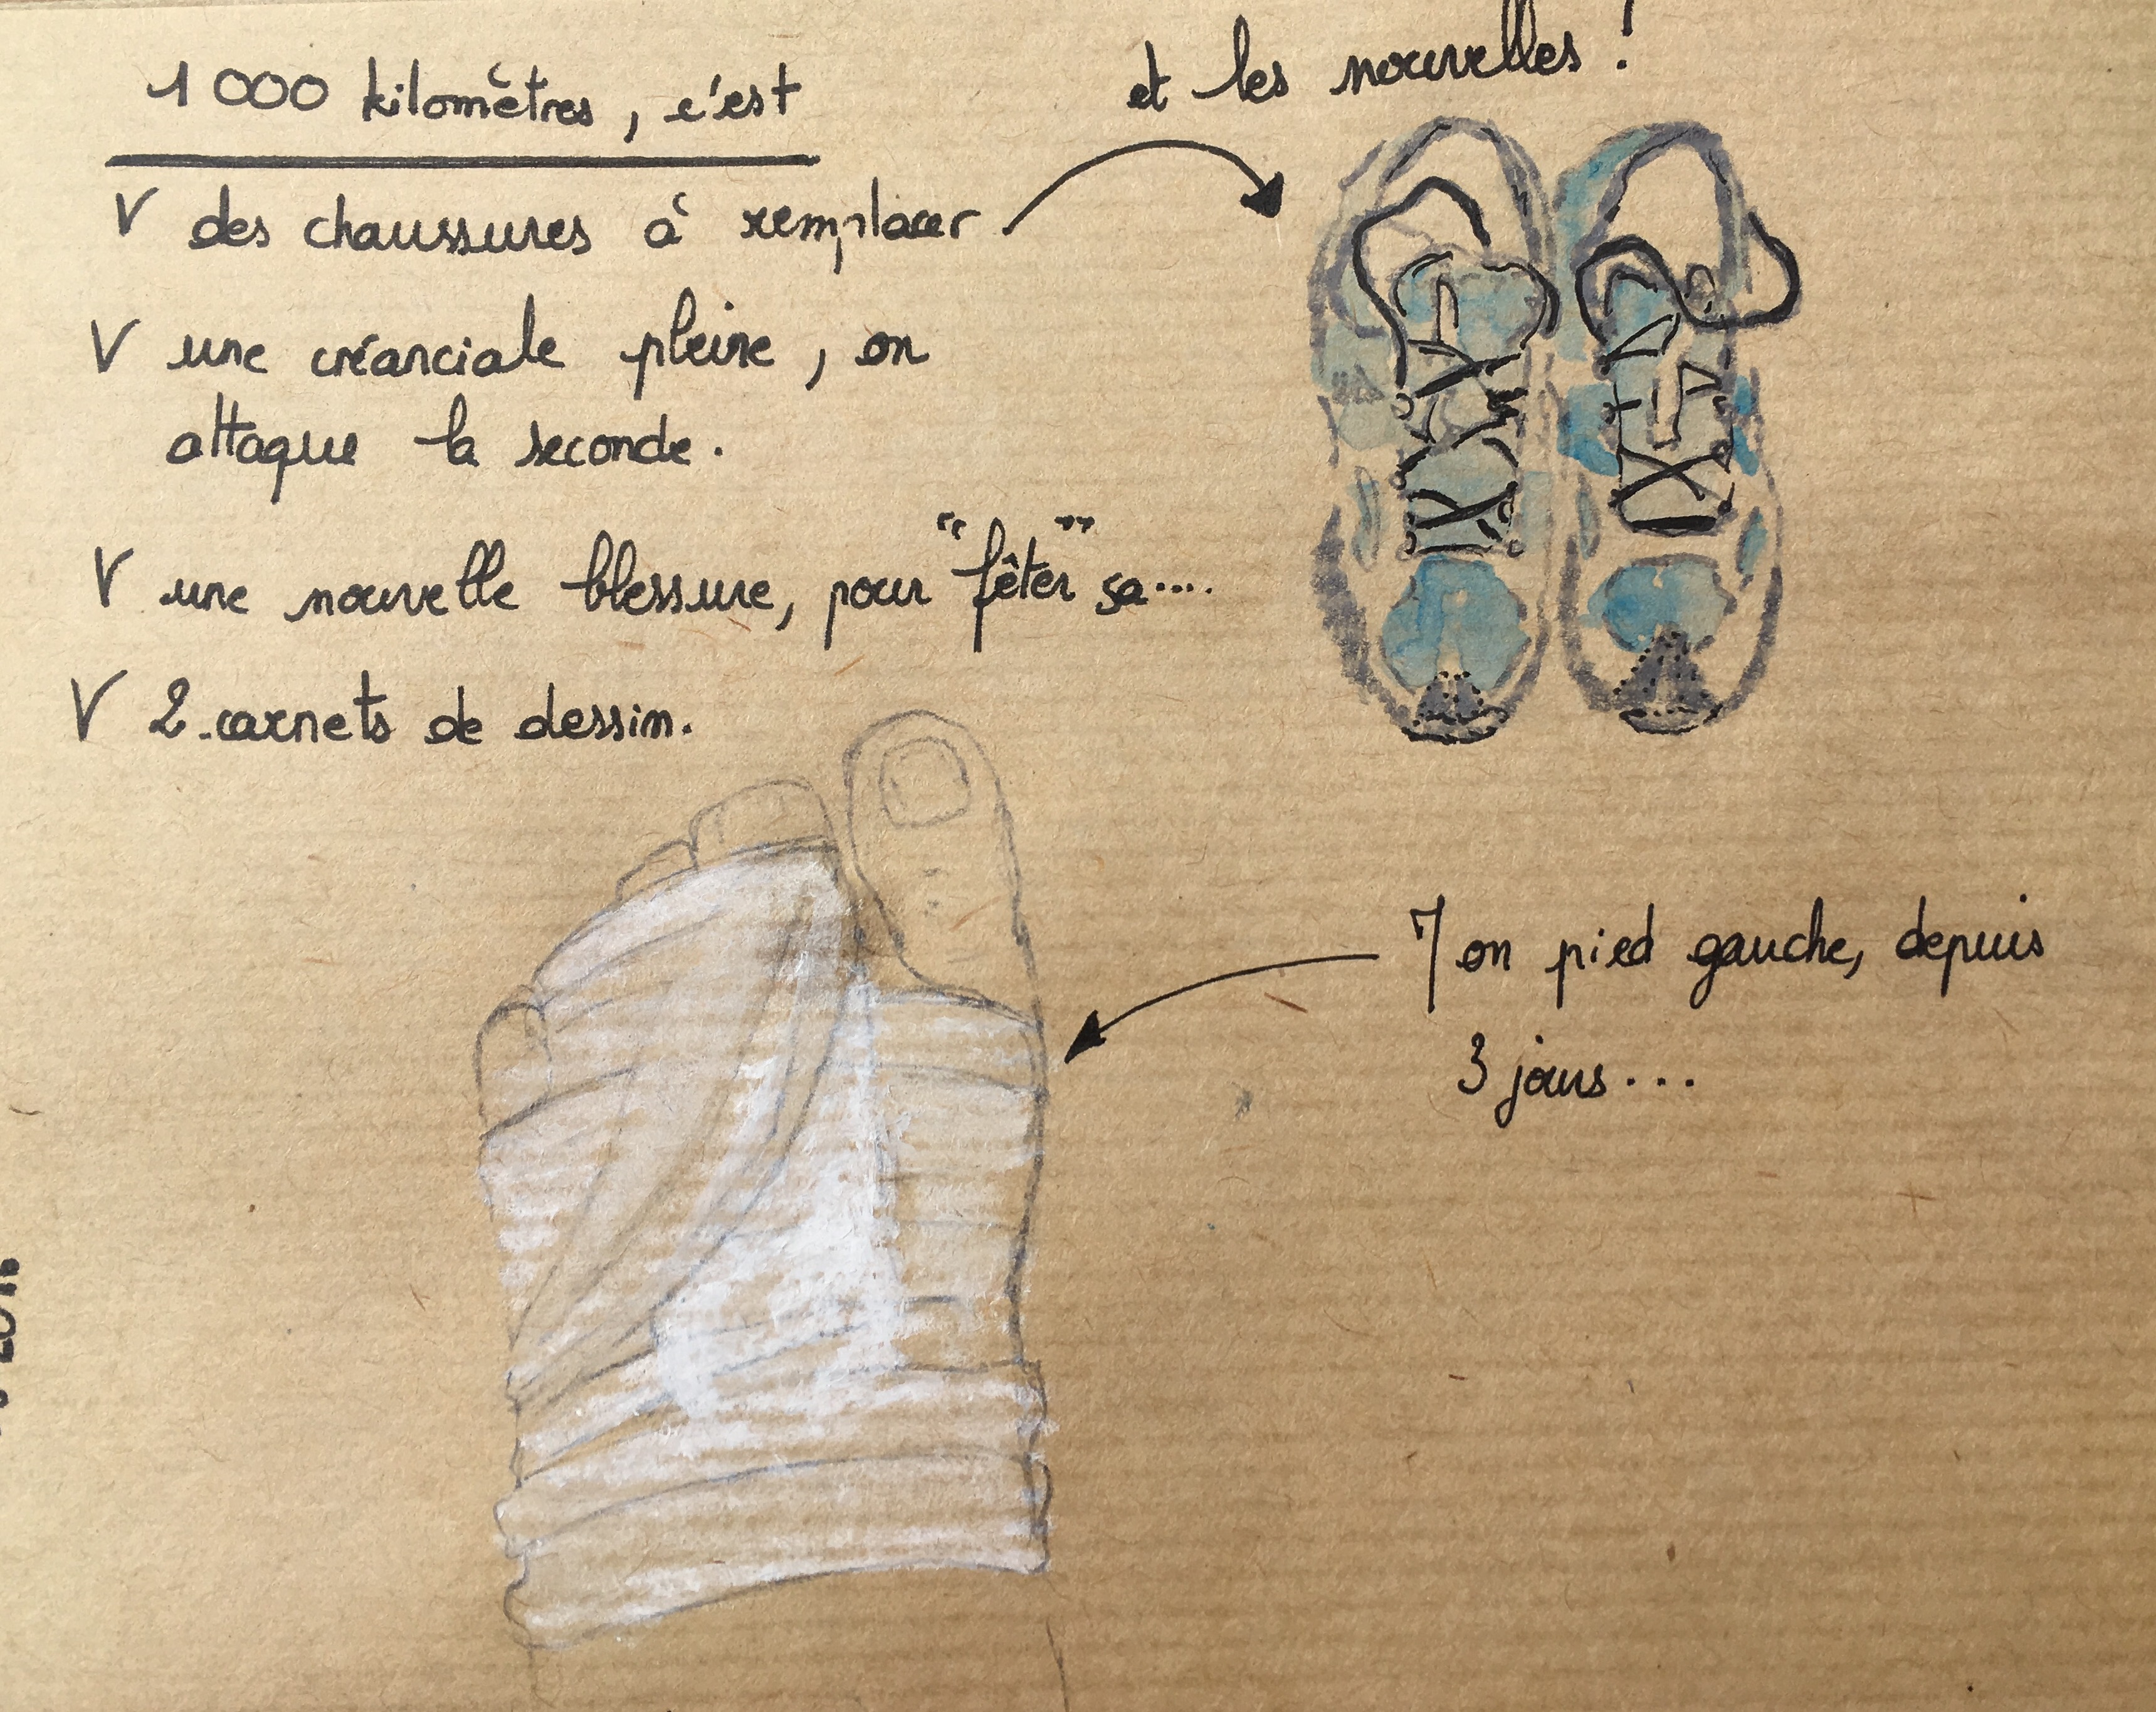 1000 kilomètres, c'est
et les nouvelles !
V des chaussures à remplacer
V une créanciale pleine, on
attaque la seconde.
V une nouvelle blessure, pour "fêter" sa....
V 2 carnets de dessin.
Mon pied gauche, depuis
3 jours...